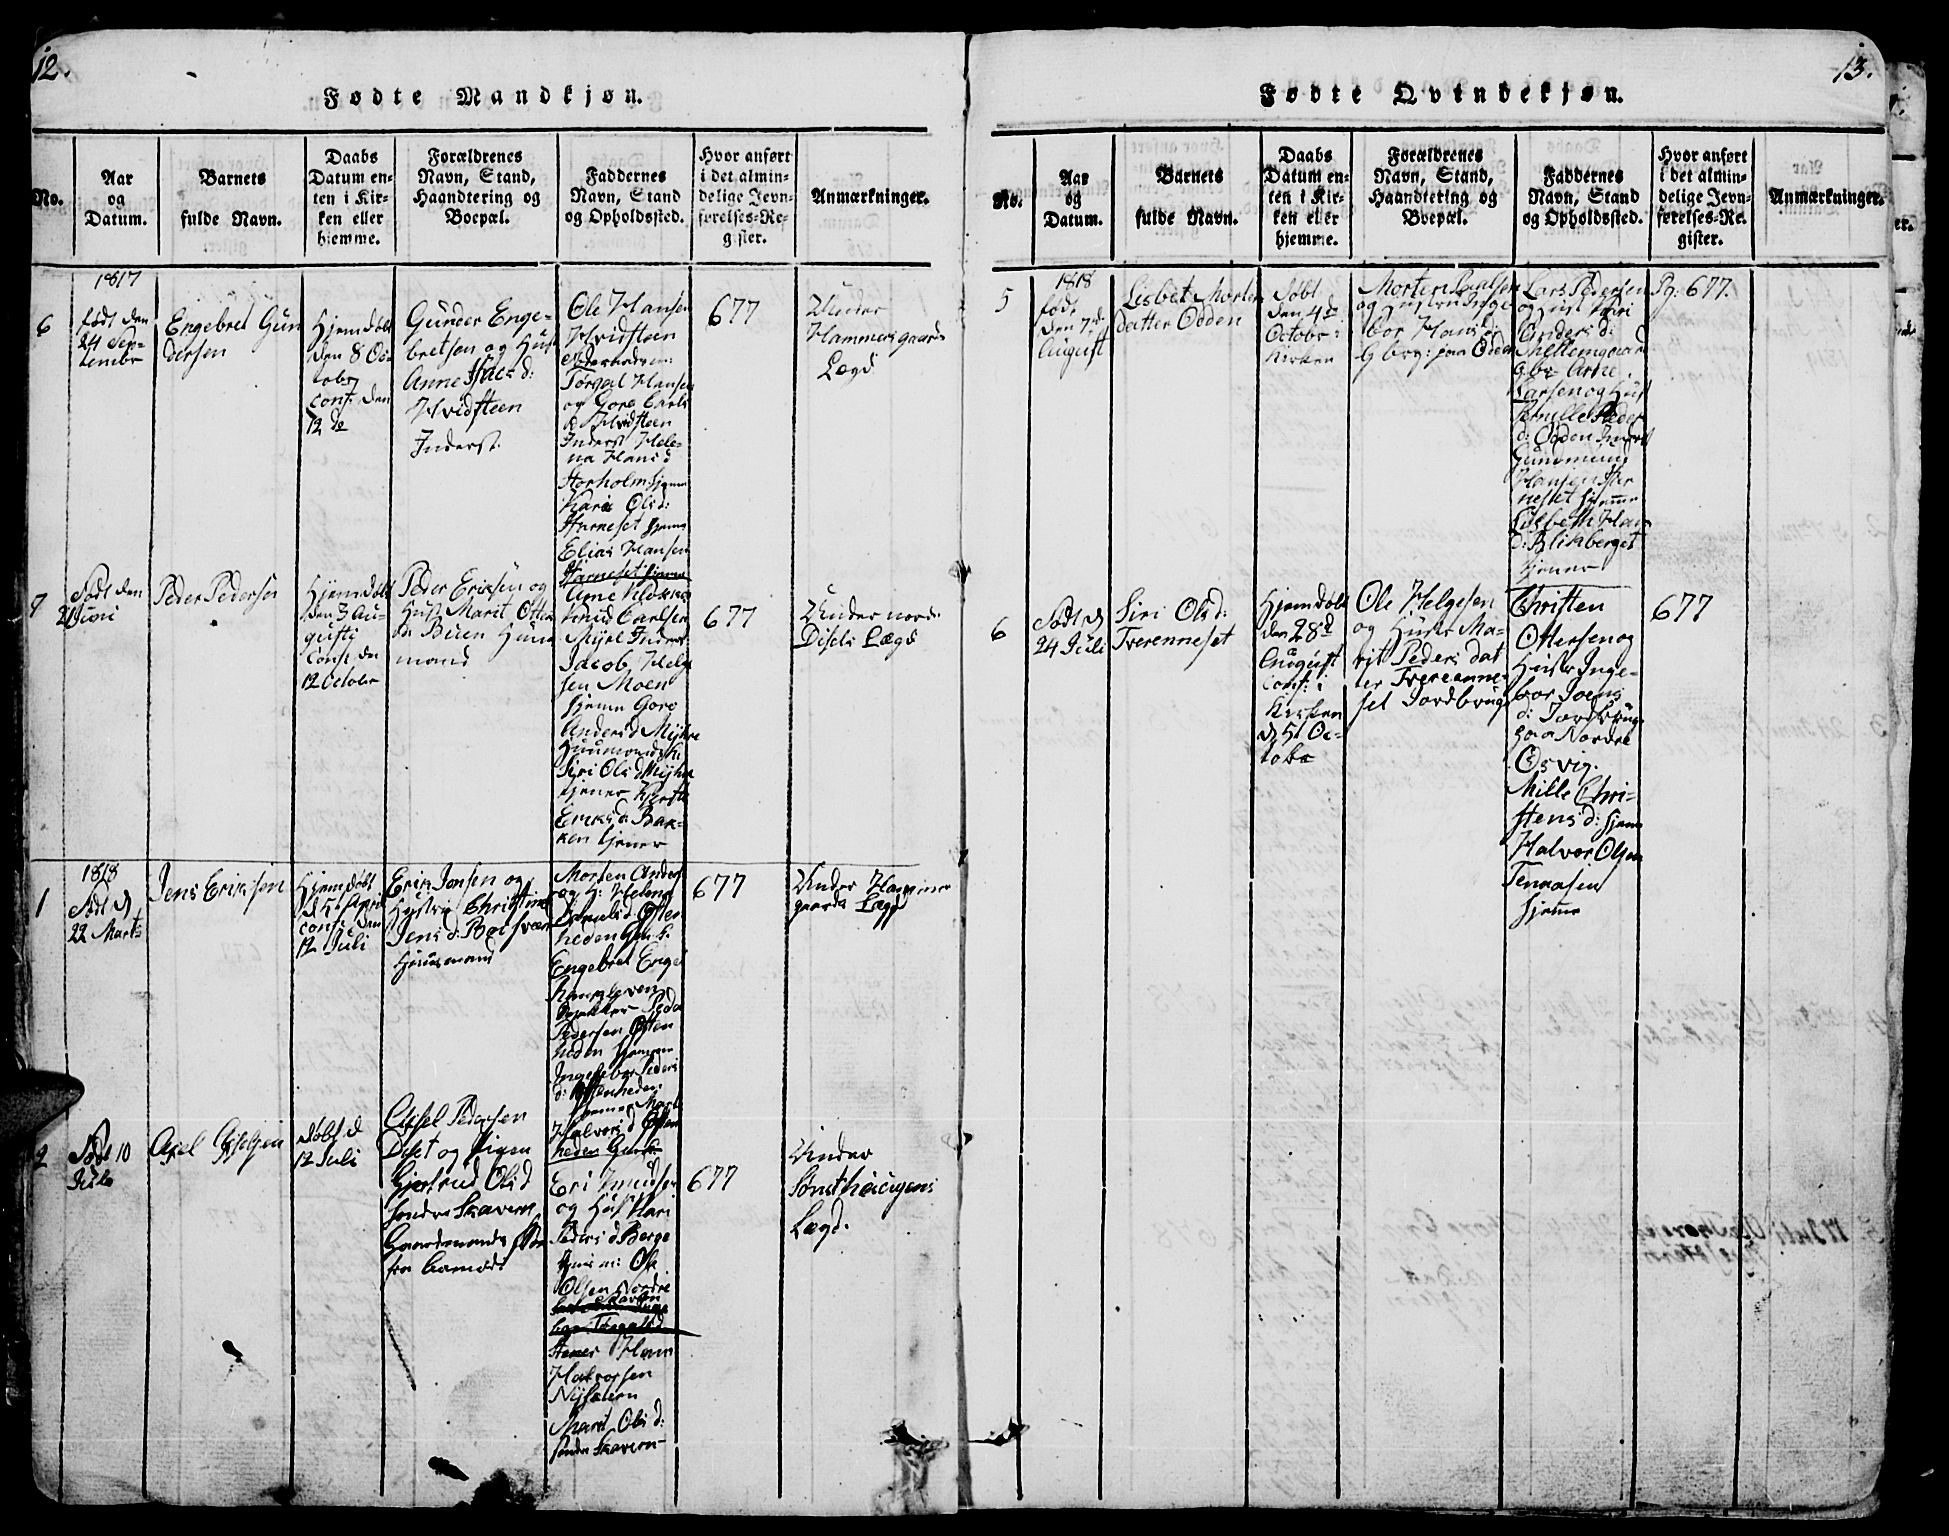 12.
Fødte Mandkjøn.
No.
Aar
og
Datum.
Barnets
fulde Navn.
Daabs
Datum en-
ten i Kir-
ken eller
hiemme.
Forældrenes
Navn, Stand,
Haandtering og
Boepæl.
Faddernes
Navn, Stand
og Opholdssted.
Hvor anført
i det almin-
delige Jevn-
førelses-Re-
gister.
Anmærkninger.
6
1817
født den
24 Sep-
tembr
Engebret Gun
dersen
Hjemdøbt
den 8 Oc-
tobr
conf. den
12 de
Gunder Enge-
bretsen og Hust
Anne
Hvidsteen
Inderst.
Ole Hansen
Hvidsteen
Torval Hansen
og Goro Carls
d. Hvidsteen
Inderst Hele-
na Hans d
Storholm hjeme
Kari Ols d:
Harneset hjeme
Elias Hansen
Harneset hjeme
677
Under
Hammersgaard
Lægd
7
Født den
2 Juni
Peder Pedersen
Hjemdøbt
den 3 Au-
gusti
conf. den
12 Octobr
Peder Eriksen og
Hust Marit Otter
d: Buen Huus
mand
Arne Klokker
Knud Carlsen
Inderst
Jacob Helge
sen Moen
hjeme Goro
Anders d
Huusmands K.
Siri Ols d
tjener
Eriks d. Bak-
ken tjener
677
Under nord
Disets Lægd
1
1818
Født d
22 Marts
Jens Eriksen
Hjemdøbt
d 5 April
conf. den
12 Juli
Erik Jonsen og
Hustru Christine
Jens d:
Huusmand
Morten Anders
og H: Helena
d: Østen
heden
Engebret Enge
Peder
Pedersen Østen
heden hjemme
Ingebor Peders
d: Østenheden
hjemme Marte
Halvors d Østen
heden
677
Under Hammer
gaards Lægd
2
Født 10
Juli
Axel Axelsen
døbt d
12 Juli
Axel Pedersen
Diset og Pigen
Gjertrud Ols d
Søndre Skavern
Gaardmands
fra Aamodt
Eri Knudsen
og Hust Kari
Peders d Berge
Huus m: Ole
Olsen Nordre
Skavern
Hans
Halvorsen
Nysætern
Marit Ols d:
søndre Skavern
677
Under
Lægd.
13.
Fødte Qvindekjøn.
No.
Aar
og
Datum.
Barnets
fulde Navn.
Daabs
Datum en-
ten i Kir-
ken eller
hjemme.
Forældrenes
Navn, Stand,
Haandtering og
Boepæl.
Faddernes
Navn, Stand
og Opholdssted.
Hvor anført
i det almin-
delige Jevn-
førelses-Re-
gister.
Anmærkninger.
5
1818
født
den 7de
August
Lisbet Morten
datter Odden
Døbt
den 4de
Octobr i
Kirken
Morten Paulsen
og Hustru Inge-
bor Hans d:
Gbrg: paa Odden
Lars Pedersen
og Hust Kari
Anders d:
Mellemgaard
gbr Arne
Larsen og Hust
Peder
d: Odden Inderst
Gundmund
Hansen Har
neset hjeme
Lisbeth Han
d: Blikberget
tjener
Pg: 677.
6
Født d
24 Juli
Siri Ols d:
Tverenneset
Hjemdøbt
den 28d
August
conf: i
Kirken
d. 5t Oc-
tober
Ole Helgesen
og Hustr Ma-
rit Peders dat
ter Tverenne-
set Jordbrug
Christen
Ottersen og
Hustr Inge-
bor Joens
d: Jordbrug
paa Nordre
Osvig.
Mille Chri-
stens d: hjeme
Halvor Olsen
Tennaasen
hjeme
677